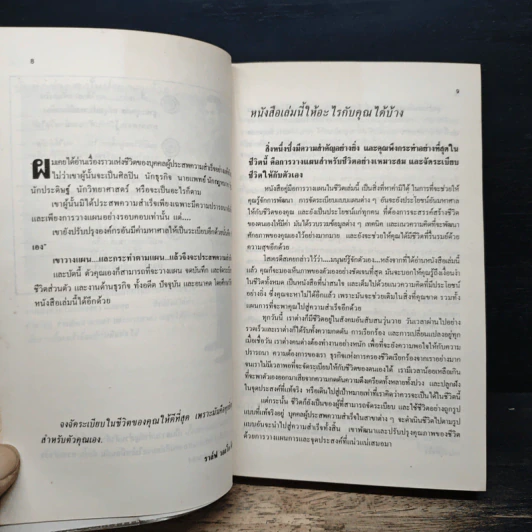 8
ผมเคยได้อ่านเรื่องราวแห่งชีวิตของบุคคลผู้ประสพความสำเร็จทุกอย่าง
ไม่ว่าเขาผู้นั้นจะเป็นศิลปิน นักธุรกิจ นายแพทย์
นักประดิษฐ์ นักวิทยาศาสตร์ หรือจะเป็นอะไรก็ตาม
เขาผู้นั้นมิได้ประสพความสำเร็จเพียงเฉพาะมีความปรารถนา
และเพียงการวางแผนอย่างรอบคอบเท่านั้น แต่....
เขายังปรับปรุงองค์กรอันมีค่ามหาศาลให้เป็นระเบียบอีกด้วย
เอง"
เขาวางแผน...และกระทำตามแผน...แล้วจึงจะประสพความสำเร็จ
และบัดนี้ ตัวคุณเองก็สามารถที่จะวางแผน จดบันทึก
ชีวิตส่วนตัว และงานด้านธุรกิจ ทั้งอดีต ปัจจุบัน และอนาคต
หนังสือเล่มนี้ได้อีกด้วย
จงจัดระเบียบในชีวิตของคุณให้ดีที่สุด เพราะมันคือ
สำหรับตัวคุณเอง.
9
หนังสือเล่มนี้ให้อะไรกับคุณได้บ้าง
สิ่งหนึ่งซึ่งมีความสำคัญอย่างยิ่ง และคุณพึงกระทำอย่างที่สุดใน
ชีวิตนี้ คือการวางแผนสำหรับชีวิตอย่างเหมาะสม และจัดระเบียบ
ชีวิตให้กับตัวเอง
หนังสือคู่มือการวางแผนในชีวิตเล่มนี้ เป็นสิ่งที่หาค่ามิได้ ในการที่จะช่วยให้
คุณรู้จักการพัฒนา การจัดระเบียบแบบแผนต่าง ๆ อันจะยังประโยชน์อันมหาศาล
ให้กับชีวิตของคุณ และยังเป็นประโยชน์แก่ทุกคน ที่ต้องการจะสรรค์สร้างชีวิต
ของตนเองให้มีค่า มันได้รวบรวมข้อมูลต่าง ๆ เทคนิค และแนวความคิดที่จะพัฒนา
ศักยภาพของคุณเองไว้อย่างมากมาย และยังจะช่วยให้คุณได้มีชีวิตที่รื่นรมย์ด้วย
ความสุขอีกด้วย
โสเครตีสเคยกล่าวไว้ว่า...มนุษย์รู้จักตัวเอง...หลังจากที่ได้อ่านหนังสือเล่มนี้
แล้ว คุณก็จะมองเห็นภาพของตัวเองอย่างชัดเจนที่สุด มันจะบอกให้คุณรู้ถึงเงื่อนงำ
ในชีวิตทั้งหมด เป็นหนังสือที่น่าสนใจ และเต็มไปด้วยแนวความคิดที่มีประโยชน์
อย่างยิ่ง ซึ่งคุณจะหาไม่ได้อีกแล้ว เพราะมันจะช่วยเติมในสิ่งที่คุณขาด รวมทั้ง
แผนการที่จะพาคุณไปสู่ความสำเร็จอีกด้วย
ทุกวันนี้ เราต่างก็มีชีวิตอยู่ในสังคมอันสับสนวุ่นวาย วันเวลาผ่านไปอย่าง
รวดเร็วและเราต่างก็ได้รับทั้งความกดดัน การเรียกร้อง และการเปลี่ยนแปลงอยู่ทุก
เมื่อเชื่อวัน เราต่างคนต่างต้องทำงานอย่างหนัก เพื่อที่จะยังความพอใจให้กับความ
ปรารถนา ความต้องการของเรา ธุรกิจแห่งการครองชีวิตเรียกร้องจากเราอย่างมาก
จนเราไม่มีเวลาพอที่จะจัดระเบียบให้กับชีวิตของตนเองได้ เรามีเวลาน้อยเหลือเกิน
ที่จะพาตัวเองออกมาเสียจากความกดดันความตึงเครียดทั้งหลายทั้งปวง และปลูกฝัง
ในจุดประสงค์ที่แท้จริง หรือเดินไปสู่เป้าหมายเท่าที่เราคิดว่าควรจะเป็นได้ในชีวิตนี้
แต่กระนั้น ชีวิตก็ยังเป็นของผู้ที่สามารถจัดระเบียบ และใช้ชีวิตอย่างถูกรูป
แบบที่แท้จริงอยู่ บุคคลผู้ประสพความสำเร็จในสาขาต่าง ๆ จะดำเนินชีวิตไปตามรูป
แบบอันจะนำไปสู่ความสำเร็จทั้งสิ้น เขาพัฒนาและปรับปรุงคุณภาพของชีวิต
ด้วยการวางแผนการและจุดประสงค์ที่แน่วแน่เสมอมา